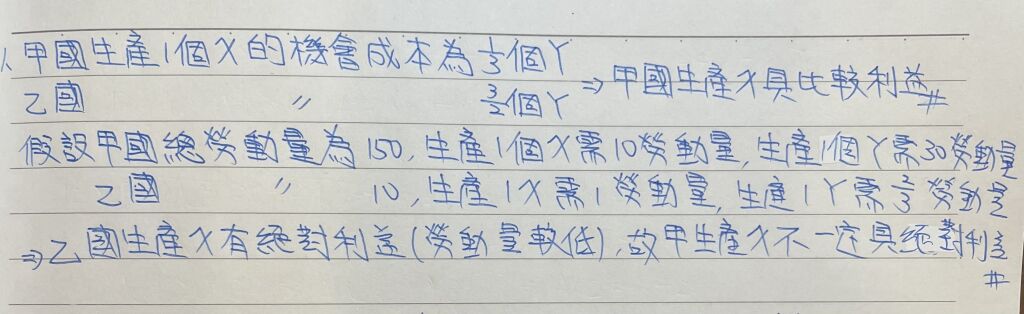 1、甲國生產1個X的機會成本為1/3個Y
乙國 〃 3/2個Y ⇒甲國生產X具比較利益#
假設甲國總勞動量為150,生產1個X需10勞動量,生產1個Y需30勞動量
乙國 〃 10,生產1X需1勞動量,生產1Y需2/3勞動量
⇒乙國生產X有絕對利益(勞動量較低),故甲生產X不一定具絕對利益
#